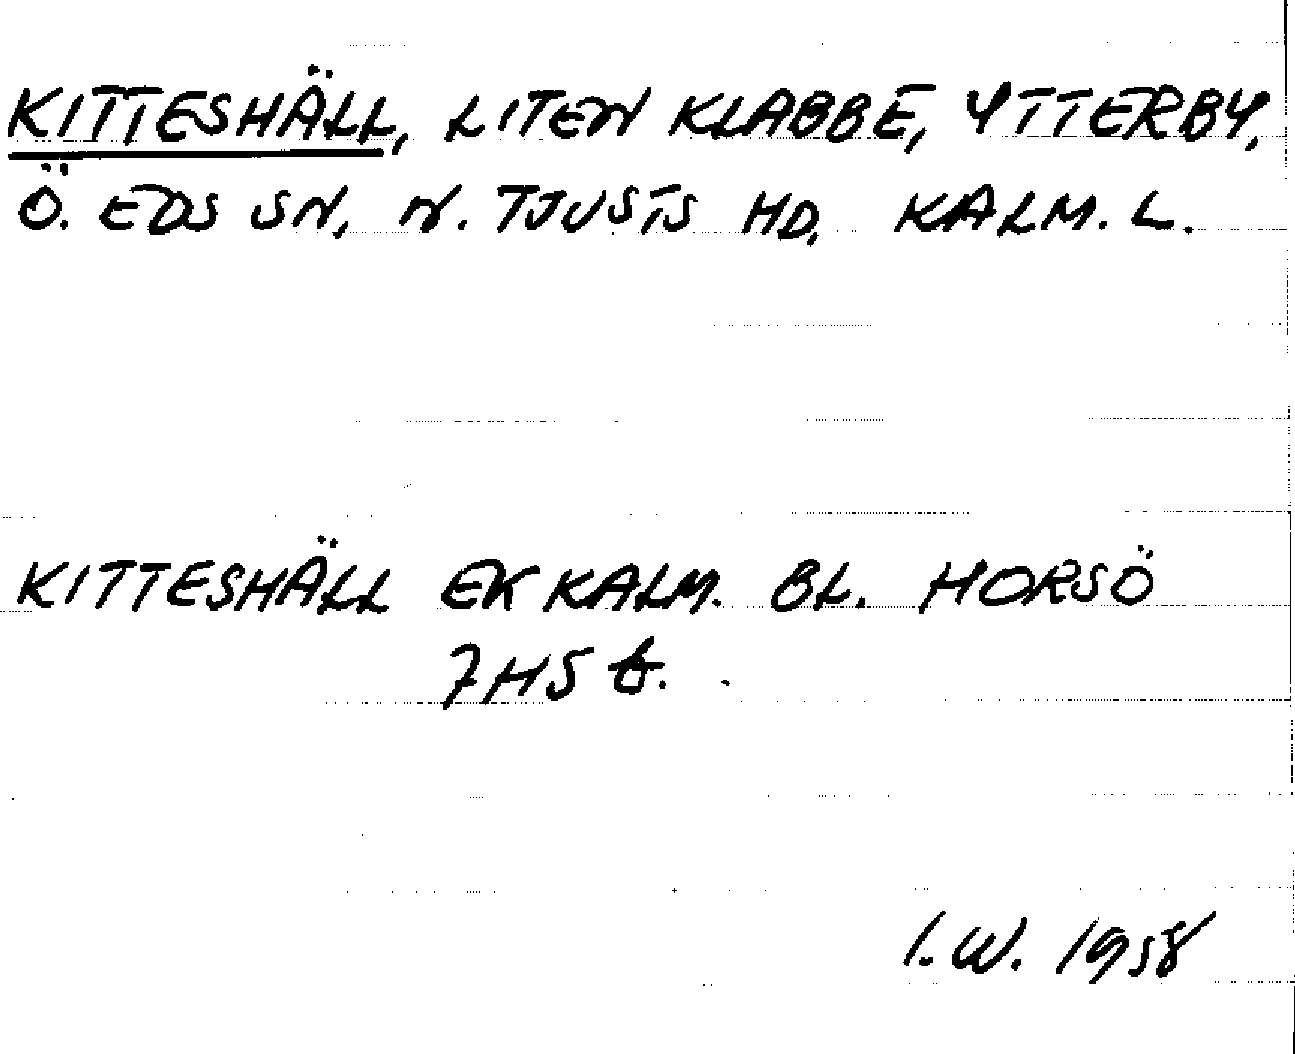 KITTESHÄLL, LITEN KLABBE, YTTERBY,
Ö. EDS SN, N. TJUSTS HD, KALM. L.
KITTESHÄLL EK KALM. BL. HORSÖ
7H5 b.
I.W. 1958